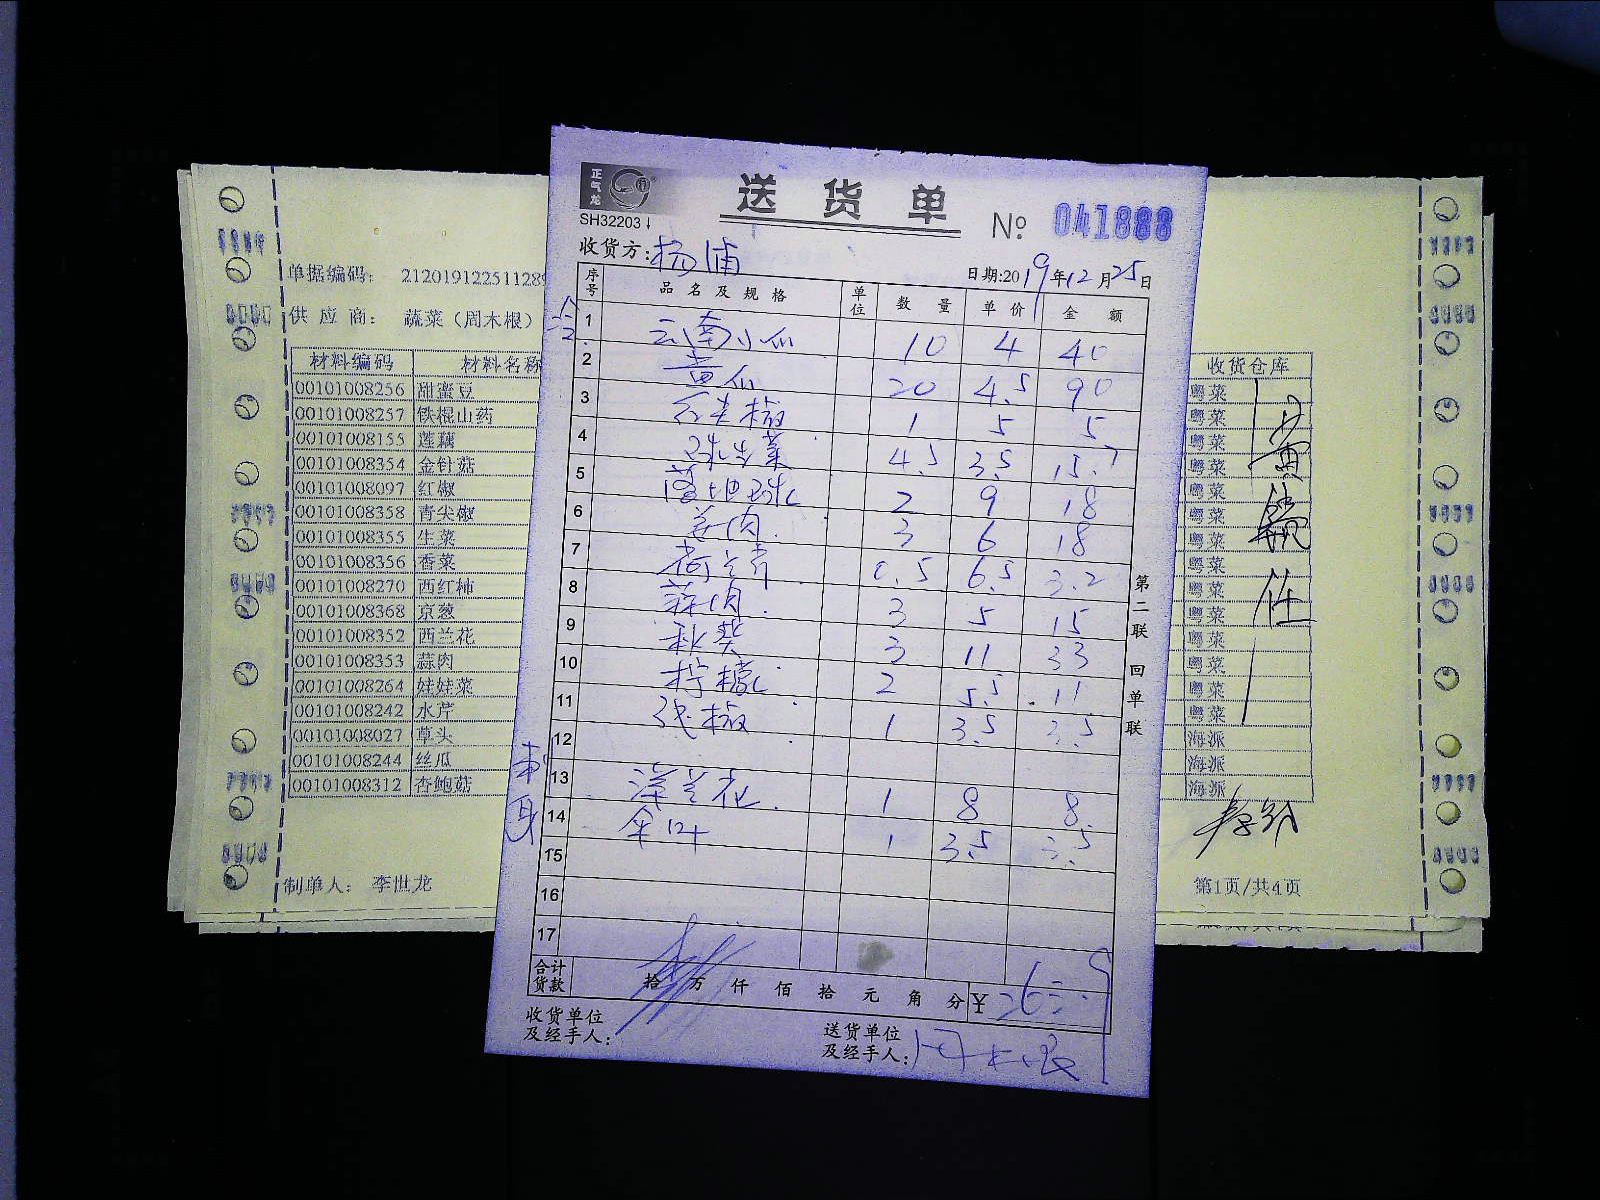 正气龙
送货单
SH32203
№ 041888
收货方:杨浦
日期:2019年12月25日
序号 品名及规格 单位 数量 单价 金额
1 云南小瓜 10 4 40
2 黄瓜 20 4.5 90
3 红尖椒 1 5 5
4 球生菜 4.5 3.5 15.7
5 落地球 2 9 18
6 姜肉 3 6 18
7 荷兰芹 0.5 6.5 3.2
8 蒜肉 3 5 15
9 秋葵 3 11 33
10 柠檬 2 5.5 11
11 线椒 1 3.5 3.5
12
13 洋兰花 1 8 8
14 伞叶 1 3.5 3.5
15
16
17
合计货款 拾 万 仟 佰 拾 元 角 分 ¥ 263.9
收货单位及经手人:
送货单位及经手人:周木根
第二联 回单联
单据编码: 212019122511289
供应商: 蔬菜(周木根)
材料编码 材料名称
00101008256 甜蜜豆
00101008257 铁棍山药
00101008155 莲藕
00101008354 金针菇
00101008097 红椒
00101008358 青尖椒
00101008355 生菜
00101008356 香菜
00101008270 西红柿
00101008368 京葱
00101008352 西兰花
00101008353 蒜肉
00101008264 娃娃菜
00101008242 水芹
00101008027 草头
00101008244 丝瓜
00101008312 杏鲍菇
制单人: 李世龙
收货仓库
粤菜
粤菜
粤菜
粤菜
粤菜
粤菜
粤菜
粤菜
粤菜
粤菜
粤菜
粤菜
粤菜
粤菜
海派
海派
海派
第1页/共4页